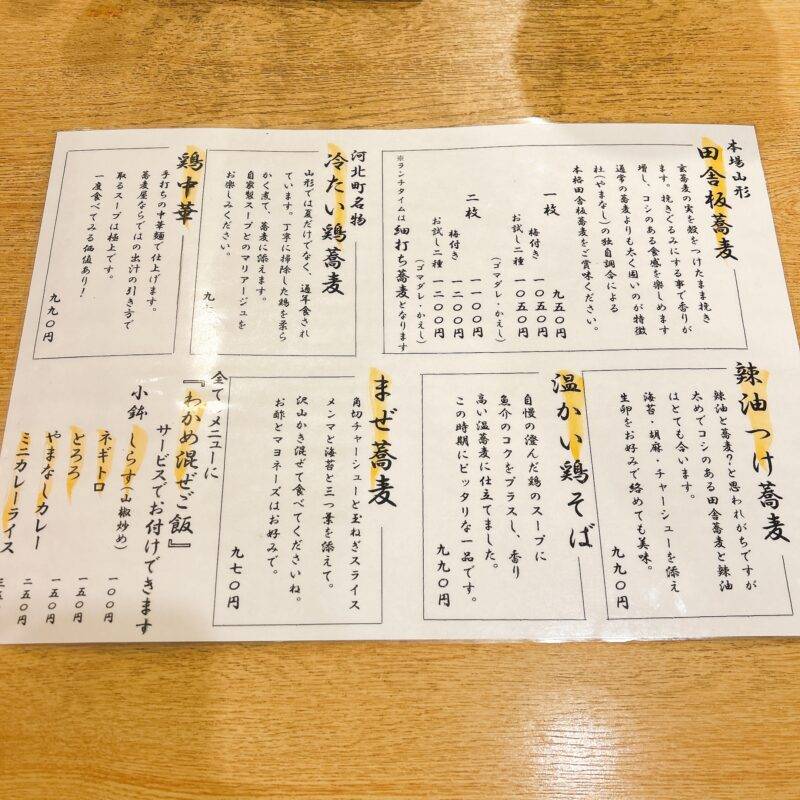 本場山形
田舎板蕎麦
玄蕎麦の実を殻をつけたまま挽き
ます。挽きぐるみにする事で香りが
増し、コシのある食感を楽しめます
通常の蕎麦よりも太く固いのが特徴
杜(やまなし)の独自調合による
本格田舎板蕎麦をご賞味ください。
一枚 九五〇円
梅付き 一〇五〇円
お試し二種 一〇五〇円
(ゴマダレ・かえし)
二枚 一一〇〇円
梅付き 一二〇〇円
お試し二種 一二〇〇円
(ゴマダレ・かえし)
※ランチタイムは細打ち蕎麦となります
河北町名物
冷たい鶏蕎麦
山形では夏だけでなく、通年食され
ています。丁寧に掃除した鶏を柔ら
かく煮て、蕎麦に添えます。
自家製スープとのマリアージュを
お楽しみください。
鶏中華
手打ちの中華麺で仕上げます。
蕎麦屋ならではの出汁の引き方で
取るスープは極上です。
一度食べてみる価値あり!
九九〇円
辣油つけ蕎麦
辣油と蕎麦?と思われがちですが
太めでコシのある田舎蕎麦と辣油
はとても合います。
海苔・胡麻・チャーシューを添え
生卵をお好みで絡めても美味。
九九〇円
温かい鶏そば
自慢の澄んだ鶏のスープに
魚介のコクをプラスし、香り
高い温蕎麦に仕立てました。
この時期にピッタリな一品です。
九九〇円
まぜ蕎麦
角切チャーシューと玉ねぎスライス
メンマと海苔と三つ葉を添えて。
沢山かき混ぜて食べてくださいね。
お酢とマヨネーズはお好みで。
九七〇円
全てのメニューに
『わかめ混ぜご飯』
サービスでお付けできます
小鉢 しらす(山椒炒め) 一〇〇円
ネギトロ 一五〇円
とろろ 一五〇円
やまなしカレー 二五〇円
ミニカレーライス